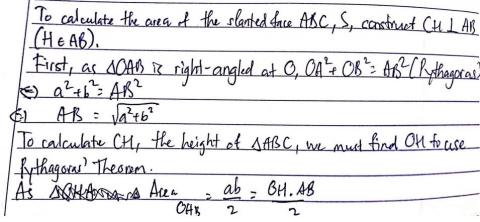 To calculate the area of the slanted face ABC, S, construct CH ⊥ AB
(H ∈ AB).
First, as △OAB is right-angled at O, OA² + OB² = AB² (Pythagoras)
⇔ a² + b² = AB²
⇔ AB = √(a² + b²)
To calculate CH, the height of △ABC, we must find OH to use
Pythagoras' Theorem.
As Area OAB = ab/2 = OH.AB/2